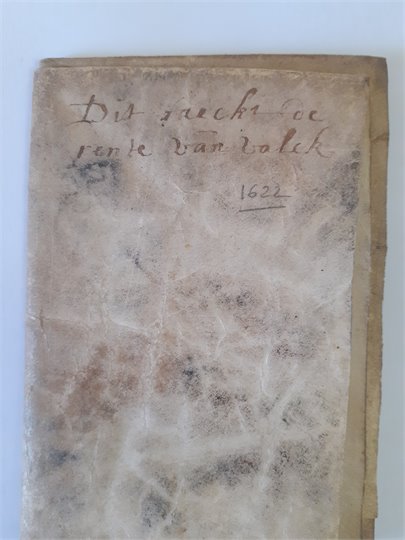 Dit raeckt de
rente van valck
1622